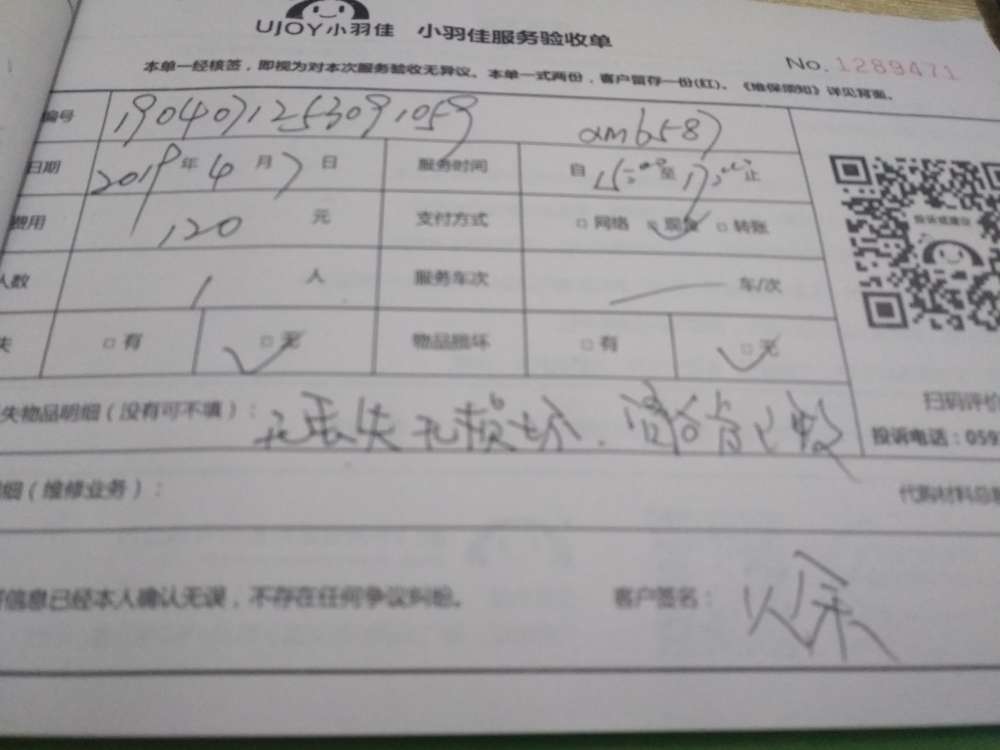 UJOY小羽佳 小羽佳服务验收单
No.1289471
本单一经核签，即视为对本次服务验收无异议。本单一式两份，客户留存一份(红)。《维保须知》详见背面。
编号 1904071253091059 am6587
日期 2019年4月7日 服务时间 自15:00至17:00止
费用 120元 支付方式 □网络 □现金 □转账
人数 1人 服务车次 车/次
失 □有 □无 物品损坏 □有 □无
失物品明细（没有可不填）： 无丢失无损坏
投诉或建议
扫码评价
投诉电话：059
细（维修业务）： 代购材料总
信息已经本人确认无误，不存在任何争议纠纷。 客户签名：